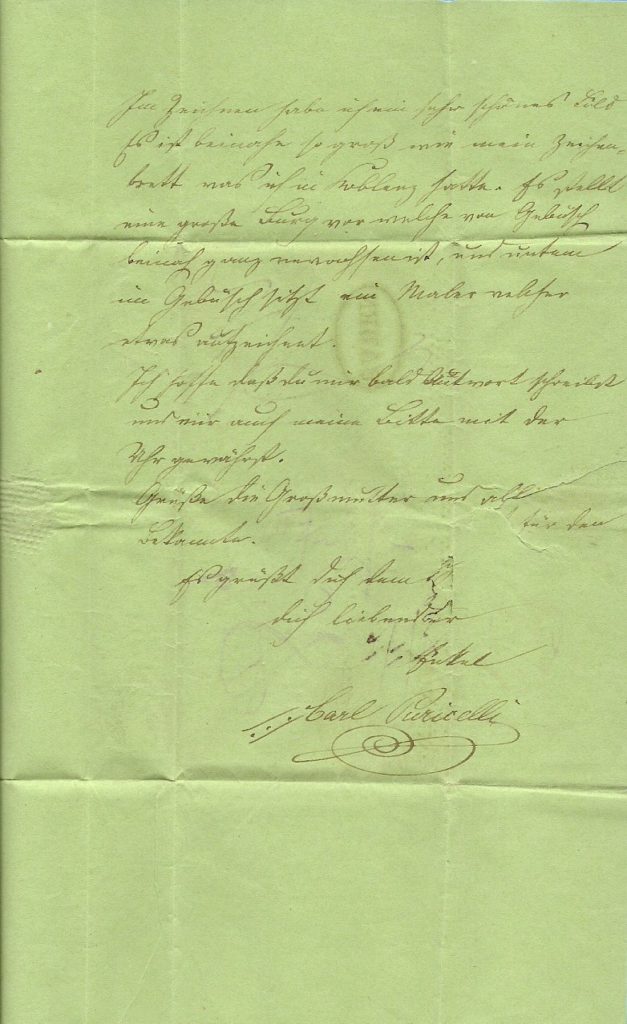 Im Zeichnen habe ich ein sehr schönes Bild
Es ist beinahe so groß wie mein Zeichen-
brett was ich in Koblenz hatte. Es stellt
eine große Burg vor welche von Gebüsch
beinah ganz verwachsen ist, und unten
im Gebüsch sitzt ein Maler welcher
etwas aufzeichnet.
Ich hoffe daß du mir bald Antwort schreibst
und mir auch meine Bitte mit der
Uhr gewährst.
Grüße die Großmutter und all
für den
Bekannte.
Es grüßt dich dein
dich liebender
Enkel
Carl Puricelli